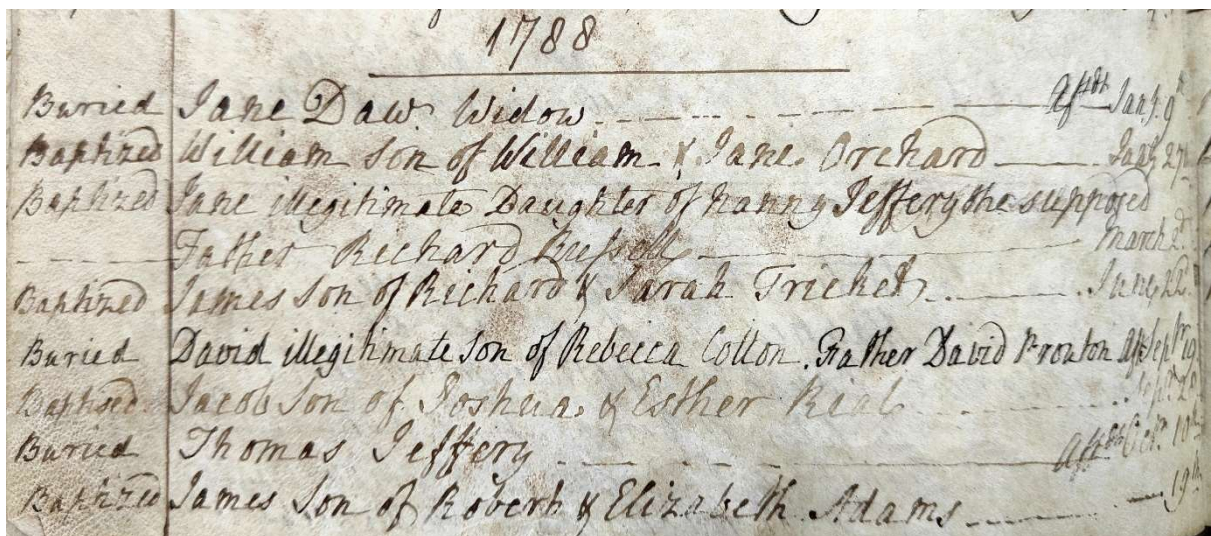 1788
Buried Jane Daw Widow Affdt Jany. 9th
Baptized William Son of William & Jane Orchard Jany 27th
Baptized Jane illegitimate Daughter of Nanny Jeffery the supposed
Father Richard Bussell March 2d.
Baptized James Son of Richard & Sarah Tricket June 22d.
Buried David illegitimate Son of Rebecca Cotton. Father David Prouton Aff Sepr 19
Baptized Jacob Son of Joshua & Esther Rial Sepr. 28
Buried Thomas Jeffery Affdt Octr. 10th
Baptized James Son of Robert & Elizabeth Adams 19th